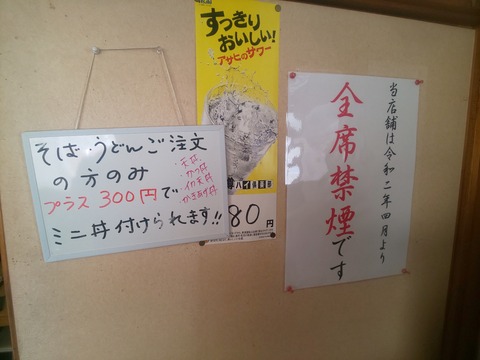 そば・うどんご注文
の方のみ
プラス300円で
・天丼
・かつ丼
・イカ天丼
・かきあげ丼
ミニ丼付けられます!!
すっきり
おいしい!
アサヒのサワー
樽ハイ倶楽部
80円
当店舗は令和二年四月より
全席禁煙です